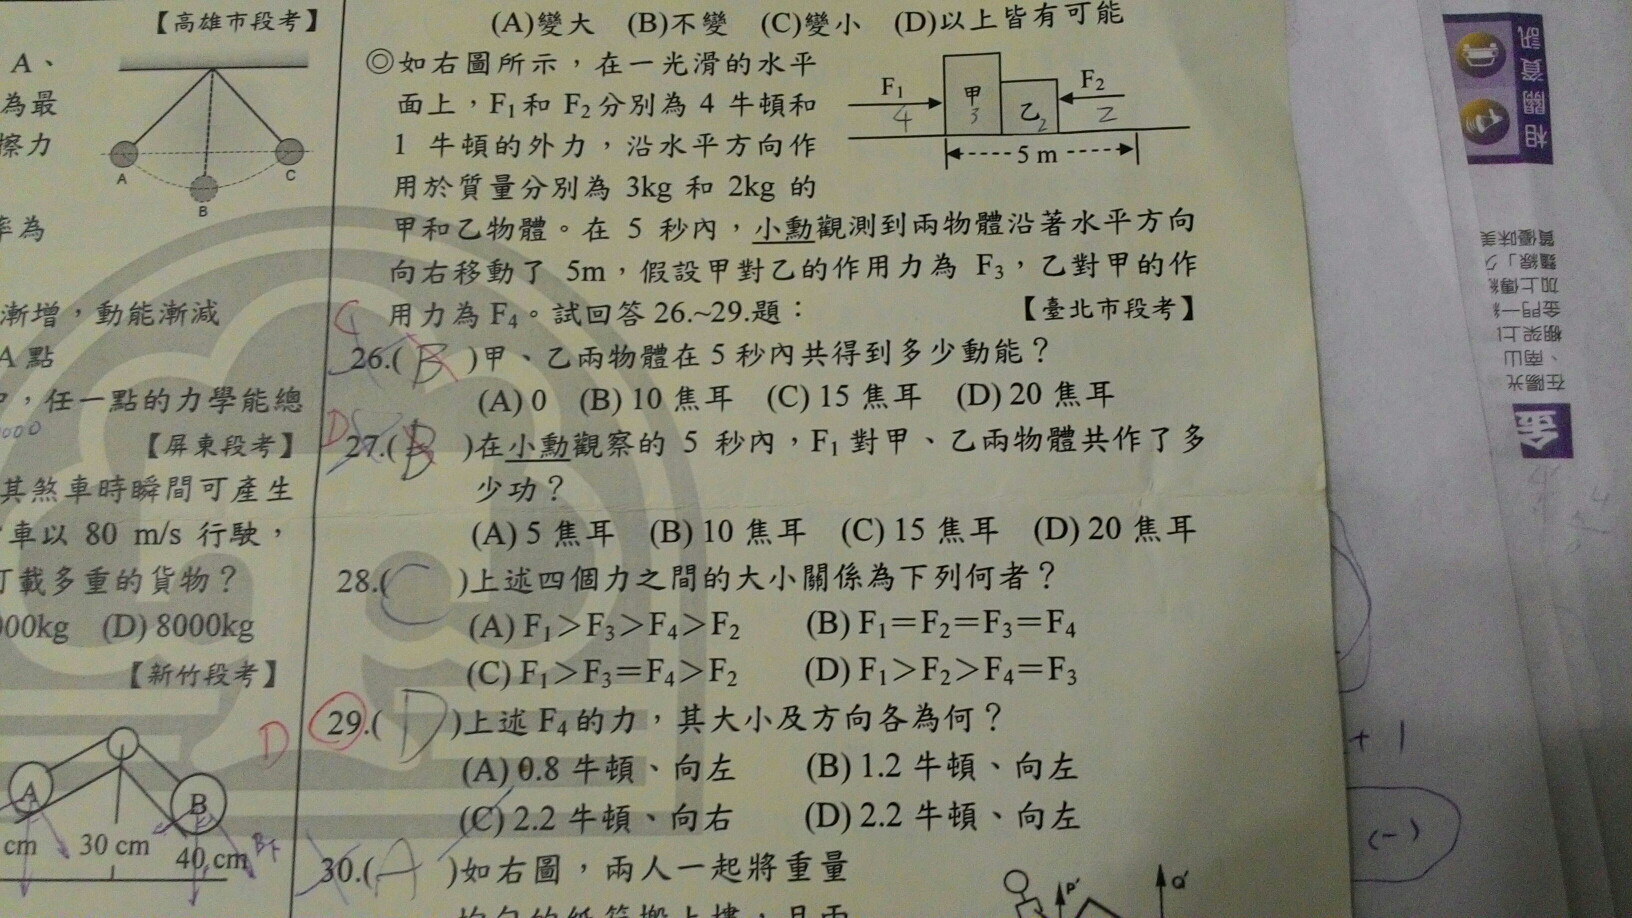 【高雄市段考】
A、
為最
擦力
A
B
C
率為
漸增，動能漸減
A 點
，任一點的力學能總
【屏東段考】
其煞車時瞬間可產生
車以 80 m/s 行駛，
載多重的貨物？
000kg (D) 8000kg
【新竹段考】
A
B
cm 30 cm 40 cm
(A)變大 (B)不變 (C)變小 (D)以上皆有可能
◎如右圖所示，在一光滑的水平
面上，F₁和 F₂分別為 4 牛頓和
1 牛頓的外力，沿水平方向作
用於質量分別為 3kg 和 2kg 的
甲和乙物體。在 5 秒內，小勳觀測到兩物體沿著水平方向
向右移動了 5m，假設甲對乙的作用力為 F₃，乙對甲的作
用力為 F₄。試回答 26.~29.題：【臺北市段考】
F₁ 甲 乙 F₂
4 3 2 2
5 m
C
26.( B )甲、乙兩物體在 5 秒內共得到多少動能？
(A) 0 (B) 10 焦耳 (C) 15 焦耳 (D) 20 焦耳
D
27.( B )在小勳觀察的 5 秒內，F₁ 對甲、乙兩物體共作了多
少功？
(A) 5 焦耳 (B) 10 焦耳 (C) 15 焦耳 (D) 20 焦耳
28.( C )上述四個力之間的大小關係為下列何者？
(A) F₁＞F₃＞F₄＞F₂ (B) F₁＝F₂＝F₃＝F₄
(C) F₁＞F₃＝F₄＞F₂ (D) F₁＞F₂＞F₄＝F₃
D
29.( D )上述 F₄的力，其大小及方向各為何？
(A) 0.8 牛頓、向左 (B) 1.2 牛頓、向左
(C) 2.2 牛頓、向右 (D) 2.2 牛頓、向左
30.( A )如右圖，兩人一起將重量
P' Q'
+ 1
(-)
相關資訊
金
在陽光
、南山
棚架上
金門一
加上傳
質優味美